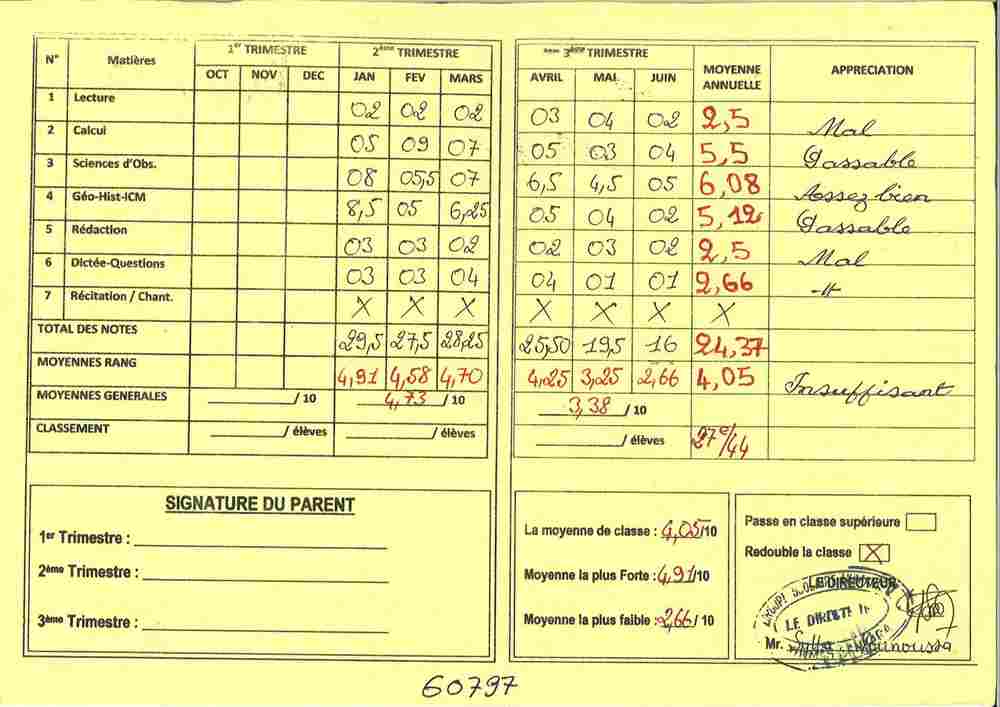 N° Matières 1er TRIMESTRE 2ème TRIMESTRE
OCT NOV DEC JAN FEV MARS
1 Lecture 02 02 02
2 Calcul 05 09 07
3 Sciences d'Obs. 08 05,5 07
4 Géo-Hist-ICM 8,5 05 6,25
5 Rédaction 03 03 02
6 Dictée-Questions 03 03 04
7 Récitation / Chant. X X X
TOTAL DES NOTES 29,5 27,5 28,25
MOYENNES RANG 4,91 4,58 4,70
MOYENNES GENERALES / 10 4,73 / 10
CLASSEMENT / élèves / élèves
3ème TRIMESTRE MOYENNE ANNUELLE APPRECIATION
AVRIL MAI JUIN
03 04 02 2,5 Mal
05 03 04 5,5 Passable
6,5 4,5 05 6,08 Assez bien
05 04 02 5,12 Passable
02 03 02 2,5 Mal
04 01 01 2,66 -//-
X X X X
25,50 19,5 16 24,37
4,25 3,25 2,66 4,05 Insuffisant
3,38 / 10
/ élèves 27e/44
SIGNATURE DU PARENT
1er Trimestre :
2ème Trimestre :
3ème Trimestre :
La moyenne de classe : 4,05/10
Moyenne la plus Forte : 4,91/10
Moyenne la plus faible : 2,66 / 10
Passe en classe supérieure
Redouble la classe X
LE DIRECTEUR
LE DIRECTEUR
Mr.
60797